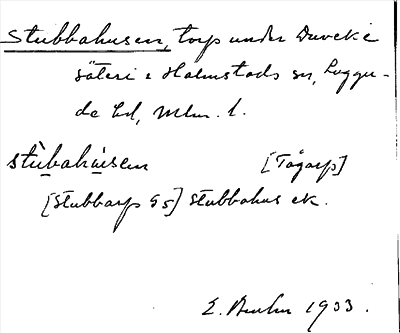 Stubbahusen, torp under Duveke
säteri i Halmstads sn, Luggu-
de hd, Mlm. l.
stùbahu̇sen [Tågarp]
[Stubbarp Gs] Stubbahus ek.
E. 1933.